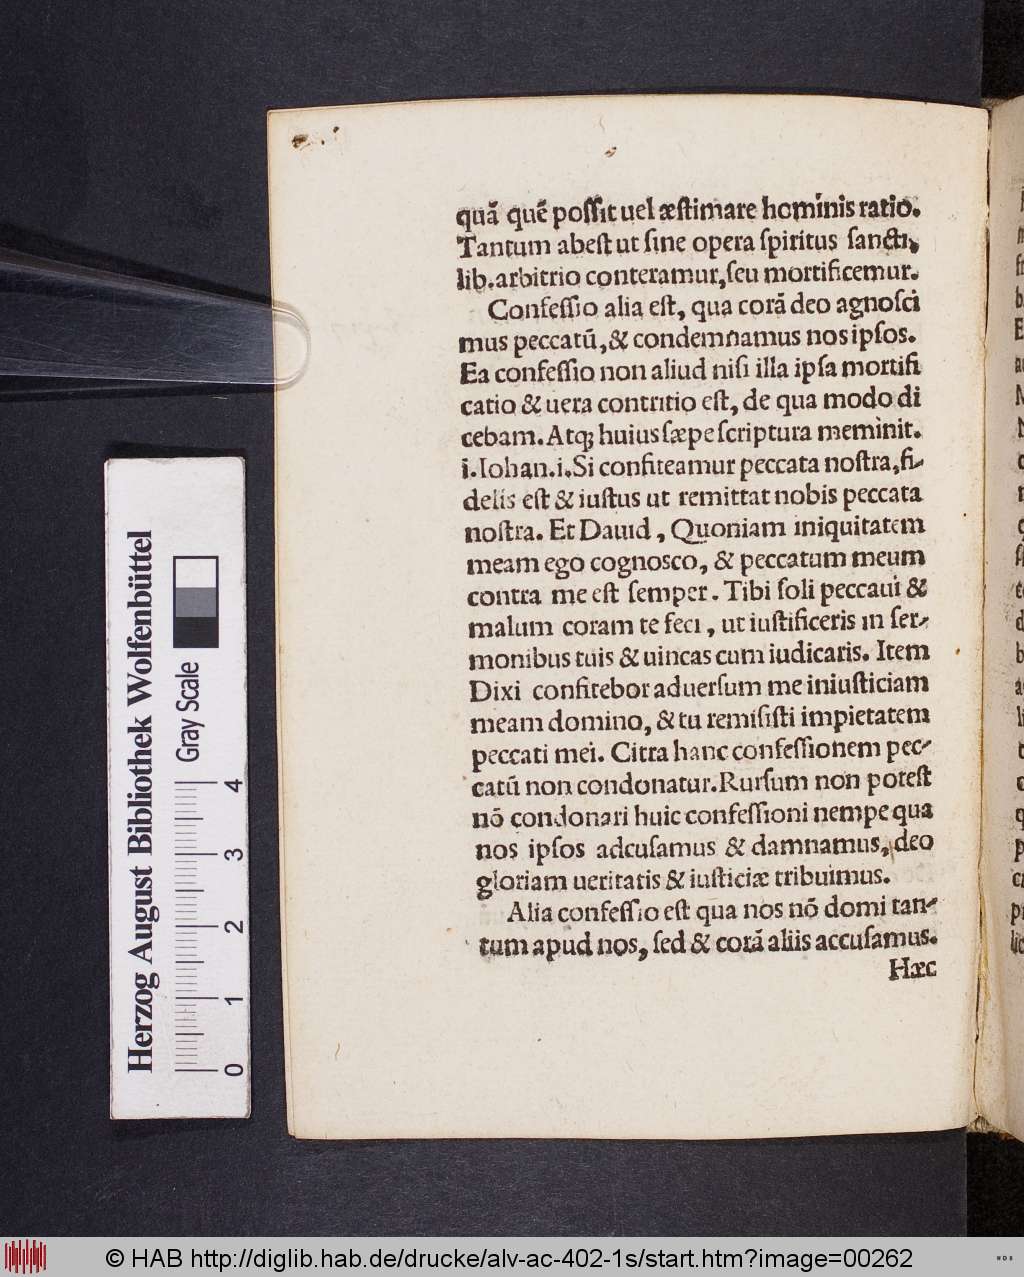 quã quē poſſit uel æſtimare hominis ratio.
Tantum abeſt ut ſine opera ſpiritus ſancti,
lib.arbitrio conteramur,ſeu mortificemur.
Confeſſio alia eſt, qua corã deo agnoſci
mus peccatũ,& condemnamus nos ipſos.
Ea confeſſio non aliud niſi illa ipſa mortifi
catio & uera contritio eſt, de qua modo di
cebam. Atq; huius ſæpe ſcriptura meminit.
i.Iohan.i.Si confiteamur peccata noſtra,fi-
delis eſt & iuſtus ut remittat nobis peccata
noſtra. Et Dauid, Quoniam iniquitatem
meam ego cognosco, & peccatum meum
contra me eſt ſemper. Tibi ſoli peccaui &
malum coram te feci, ut iuſtificeris in ſer-
monibus tuis & uincas cum iudicaris. Item
Dixi confitebor aduerſum me iniuſticiam
meam domino, & tu remiſiſti impietatem
peccati mei. Citra hanc confeſſionem pec-
catũ non condonatur.Rurſum non poteſt
nõ condonari huic confeſſioni nempe qua
nos ipſos adcuſamus & damnamus, deo
gloriam ueritatis & iuſticiæ tribuimus.
Alia confeſſio eſt qua nos nõ domi tan-
tum apud nos, ſed & corã aliis accuſamus.
Hæc
Herzog August Bibliothek Wolfenbüttel
Gray Scale
0 1 2 3 4
© HAB http://diglib.hab.de/drucke/alv-ac-402-1s/start.htm?image=00262